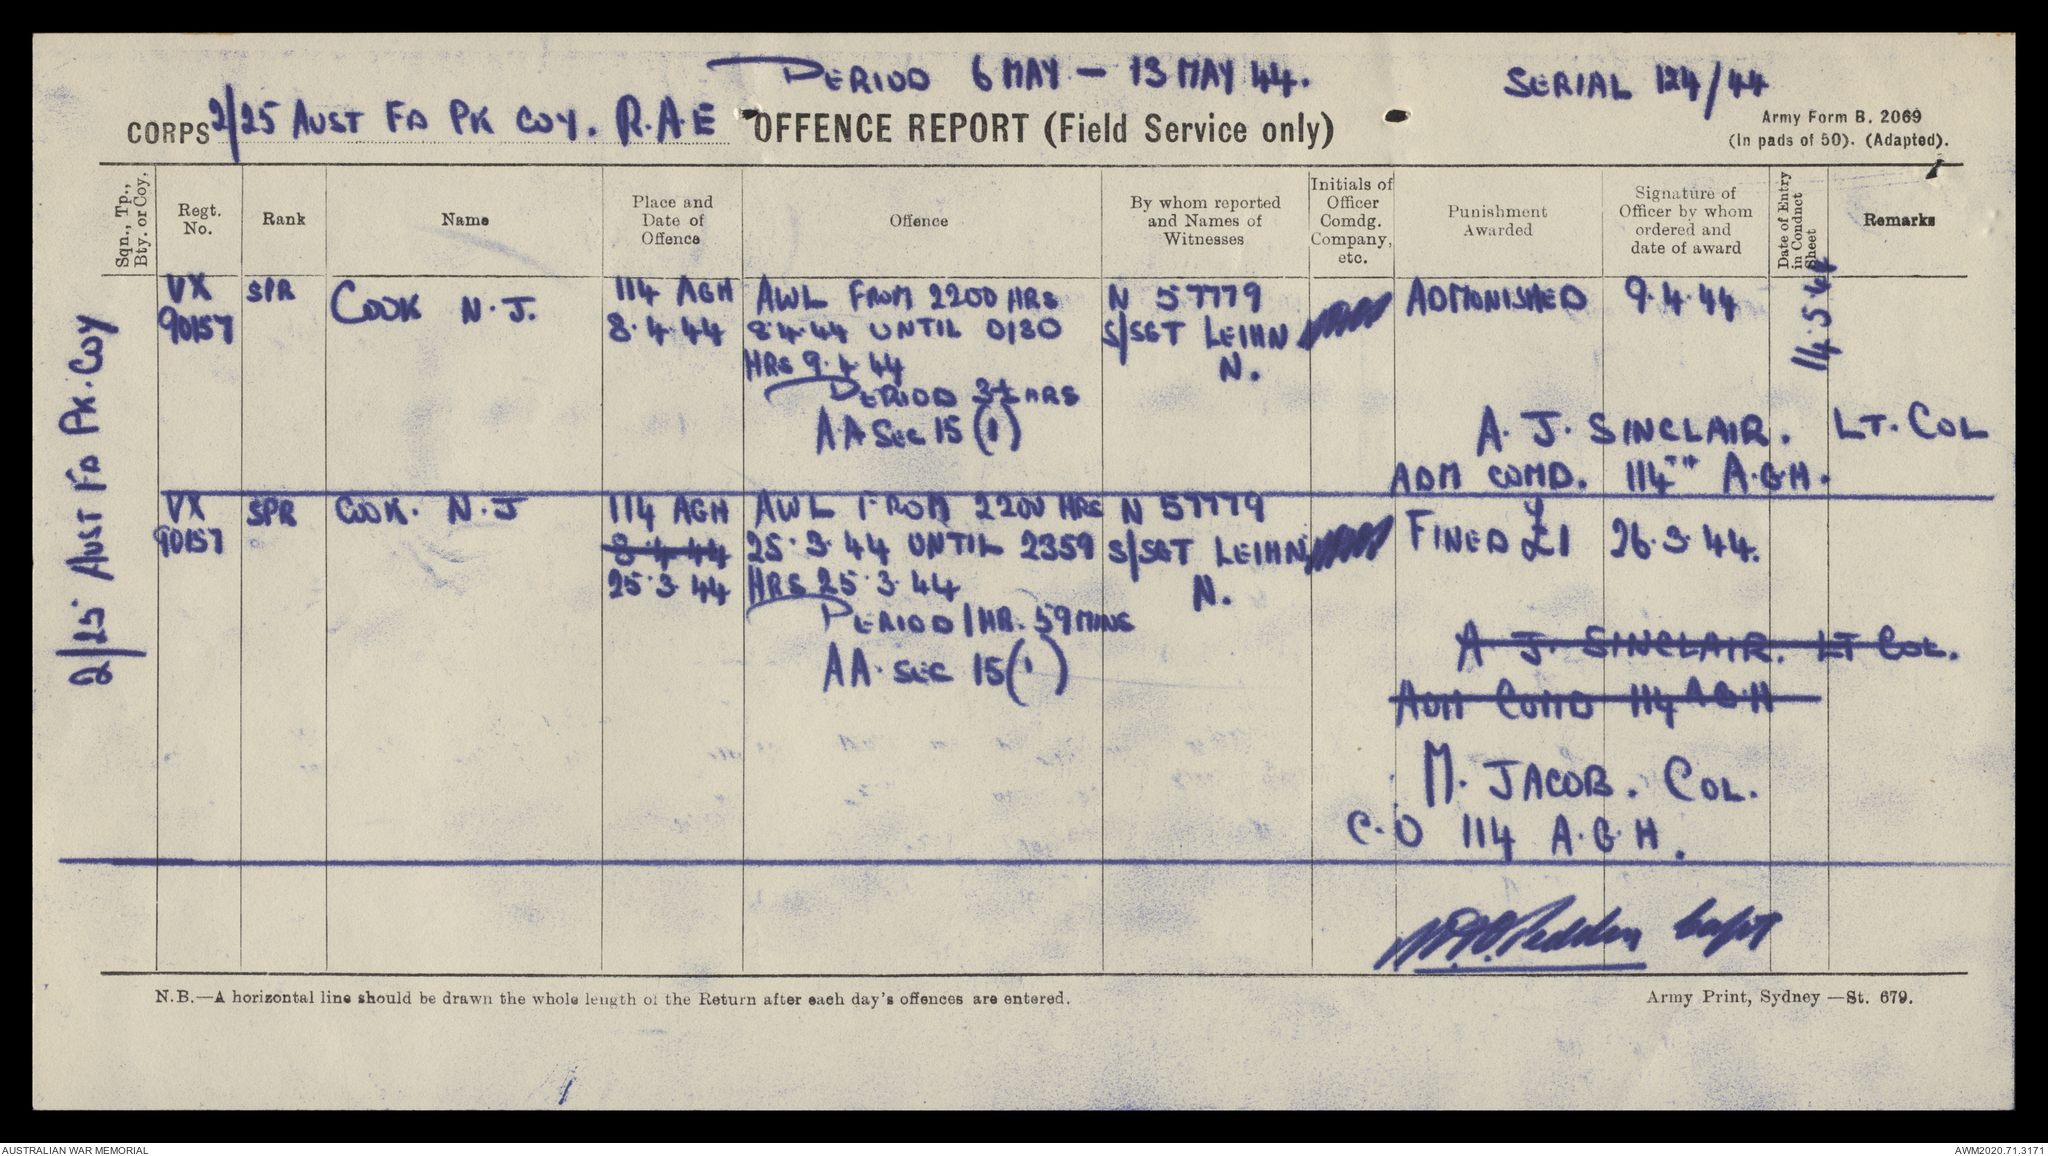 PERIOD 6 MAY - 13 MAY 44.
SERIAL 124/44
CORPS 2/25 AUST FD PK COY. R.A.E
OFFENCE REPORT (Field Service only)
Army Form B. 2069
(In pads of 50). (Adapted).
Sqn., Tp., Bty. or Coy.
Regt. No.
Rank
Name
Place and Date of Offence
Offence
By whom reported and Names of Witnesses
Initials of Officer Comdg. Company, etc.
Punishment Awarded
Signature of Officer by whom ordered and date of award
Date of Entry in Conduct Sheet
Remarks
2/25 AUST FD PK. COY
VX 90157
SPR
COOK N. J.
114 AGH
8.4.44
AWL FROM 2200 HRS
8.4.44 UNTIL 0130
HRS 9.4.44
PERIOD 3½ HRS
AA Sec 15 (1)
N 57779
S/SGT LEIHN
N.
ADMONISHED
9.4.44
14.5.44
A. J. SINCLAIR. LT. COL
ADM COMD. 114TH A.G.H.
VX 90157
SPR
COOK. N. J
114 AGH
8.4.44
25.3.44
AWL FROM 2200 HRS
25.3.44 UNTIL 2359
HRS 25.3.44
PERIOD 1 HR. 59 MINS
AA. SEC 15 (1)
N 57779
S/SGT LEIHN
N.
FINED £1
26.3.44.
A J. SINCLAIR. LT COL.
ADM COMD 114 A.G.H
M. JACOB. COL.
C.O 114 A.G.H.
Capt
N.B.—A horizontal line should be drawn the whole length of the Return after each day's offences are entered.
Army Print, Sydney —St. 679.
AUSTRALIAN WAR MEMORIAL
AWM2020.71.3171